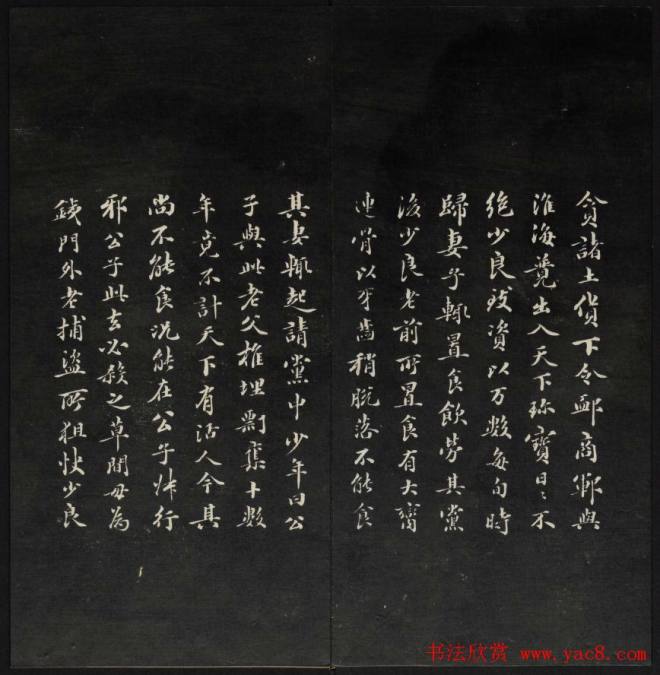 貪諸土貨下令郵商鄭與
淮海競出入天下珎寶日〻不
絶少良致資以万數每旬時
歸妻子輒置食飲勞其黨
後少良老前所置食有大臠
連骨以牙齒稍脫落不能食
其妻輒起請黨中少年曰公
子與此老父椎埋剽奪十數
年竟不計天下有活人今其
尚不能食況能在公子叔行
耶公子此去必殺之草間毋為
鐵門外老捕盜所狙快少良
书法欣赏 www.yac8.com